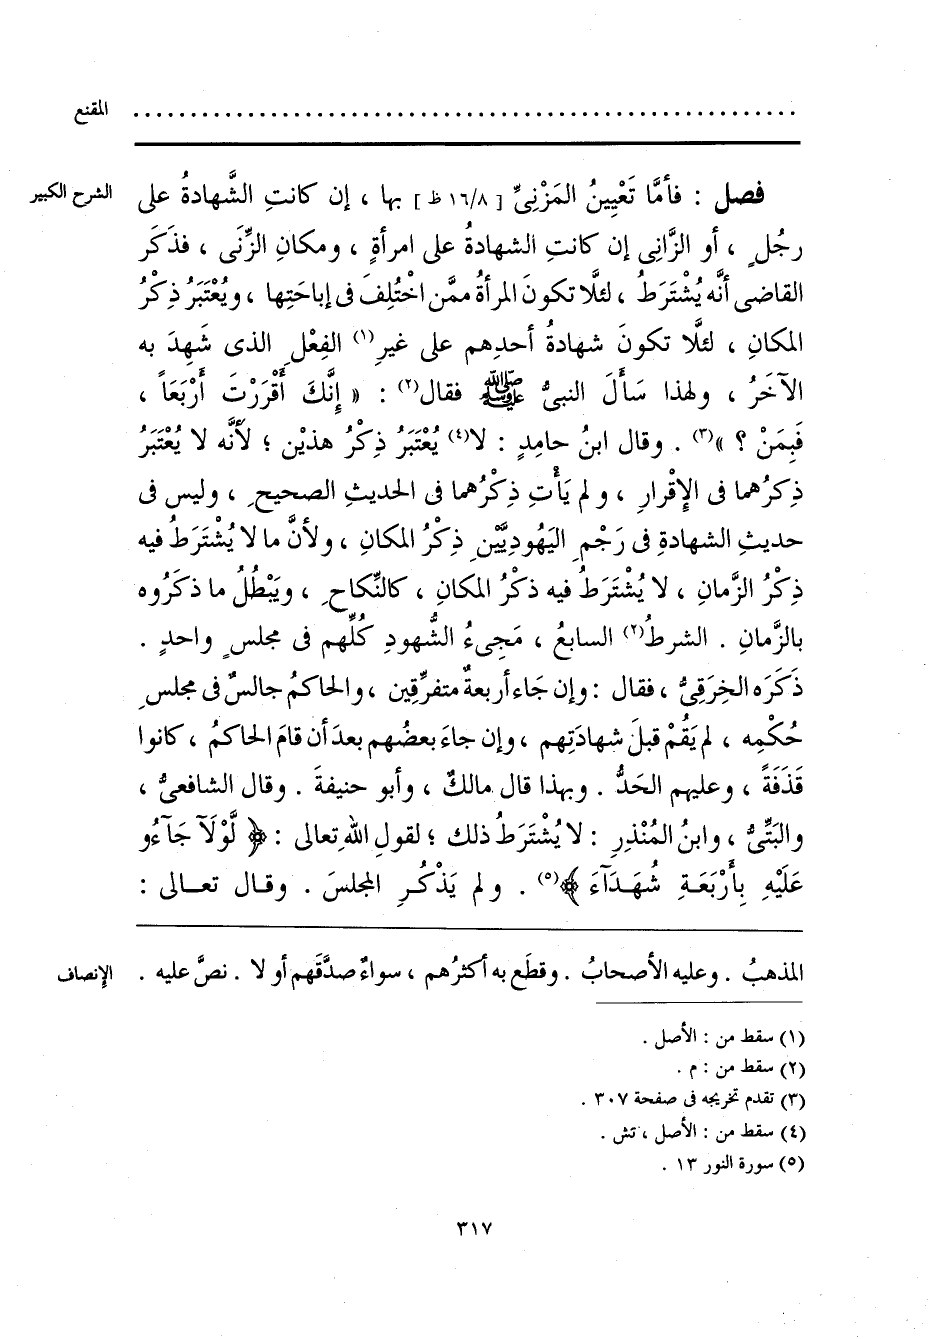 المقنع ........................................................
الشرح الكبير فصل : فأمَّا تَعْيِينُ المَزْنِىِّ [ ١٦/٨ ظ ] بها ، إن كانتِ الشَّهادةُ على
رجُلٍ ، أو الزَّانِى إن كانتِ الشهادةُ على امرأةٍ ، ومكانِ الزِّنَى ، فذَكَر
القاضى أنَّه يُشْتَرَطُ ، لئلَّا تكونَ المرأةُ ممَّن اخْتُلِفَ فى إباحَتِها ، ويُعْتَبَرُ ذِكْرُ
المكانِ ، لئلَّا تكونَ شهادةُ أحدِهم على غيرِ(١) الفِعْلِ الذى شَهِدَ به
الآخَرُ ، ولهذا سَأَلَ النبىُّ ﷺ فقال(٢) : « إِنَّكَ أَقْرَرْتَ أَرْبَعَاً ،
فَبِمَنْ ؟ »(٣) . وقال ابنُ حامِدٍ : لا(٤) يُعْتَبَرُ ذِكْرُ هذيْن ؛ لأنَّه لا يُعْتَبَرُ
ذِكرُهما فى الإِقْرارِ ، ولم يَأْتِ ذِكْرُهما فى الحديثِ الصحيحِ ، وليس فى
حديثِ الشهادةِ فى رَجْمِ اليَهُودِيَّيْنِ ذِكْرُ المكانِ ، ولأنَّ ما لا يُشْتَرَطُ فيه
ذِكْرُ الزَّمانِ ، لا يُشْتَرَطُ فيه ذكْرُ المكانِ ، كالنِّكاحِ ، ويَبْطُلُ ما ذكَرُوه
بالزَّمانِ . الشرطُ(٢) السابعُ ، مَجِىءُ الشُّهودِ كُلِّهم فى مجلسٍ واحدٍ .
ذَكَرَه الخِرَقِىُّ ، فقال : وإن جَاء أربعةٌ متفرِّقِين ، والحاكمُ جالسٌ فى مجلسِ
حُكْمِه ، لم يَقُمْ قبلَ شهادَتِهم ، وإن جاءَ بعضُهم بعدَ أن قامَ الحاكمُ ، كانوا
قَذَفَةً ، وعليهم الحَدُّ . وبهذا قال مالكٌ ، وأبو حنيفةَ . وقال الشافعىُّ ،
والبَتِّىُّ ، وابنُ المُنْذِرِ : لا يُشْتَرَطُ ذلك ؛ لقولِ اللهِ تعالى : ﴿ لَّوْلَآ جَآءُو
عَلَيْهِ بِأَرْبَعَةِ شُهَدَآءَ ﴾(٥) . ولم يَذْكُرِ المجلسَ . وقال تعالى :
الإنصاف المذهبُ . وعليه الأصحابُ . وقطَع به أكثرُهم ، سواءٌ صدَّقَهم أو لا . نصَّ عليه .
(١) سقط من : الأصل .
(٢) سقط من : م .
(٣) تقدم تخريجه فى صفحة ٣٠٧ .
(٤) سقط من : الأصل ، تش .
(٥) سورة النور ١٣ .
٣١٧